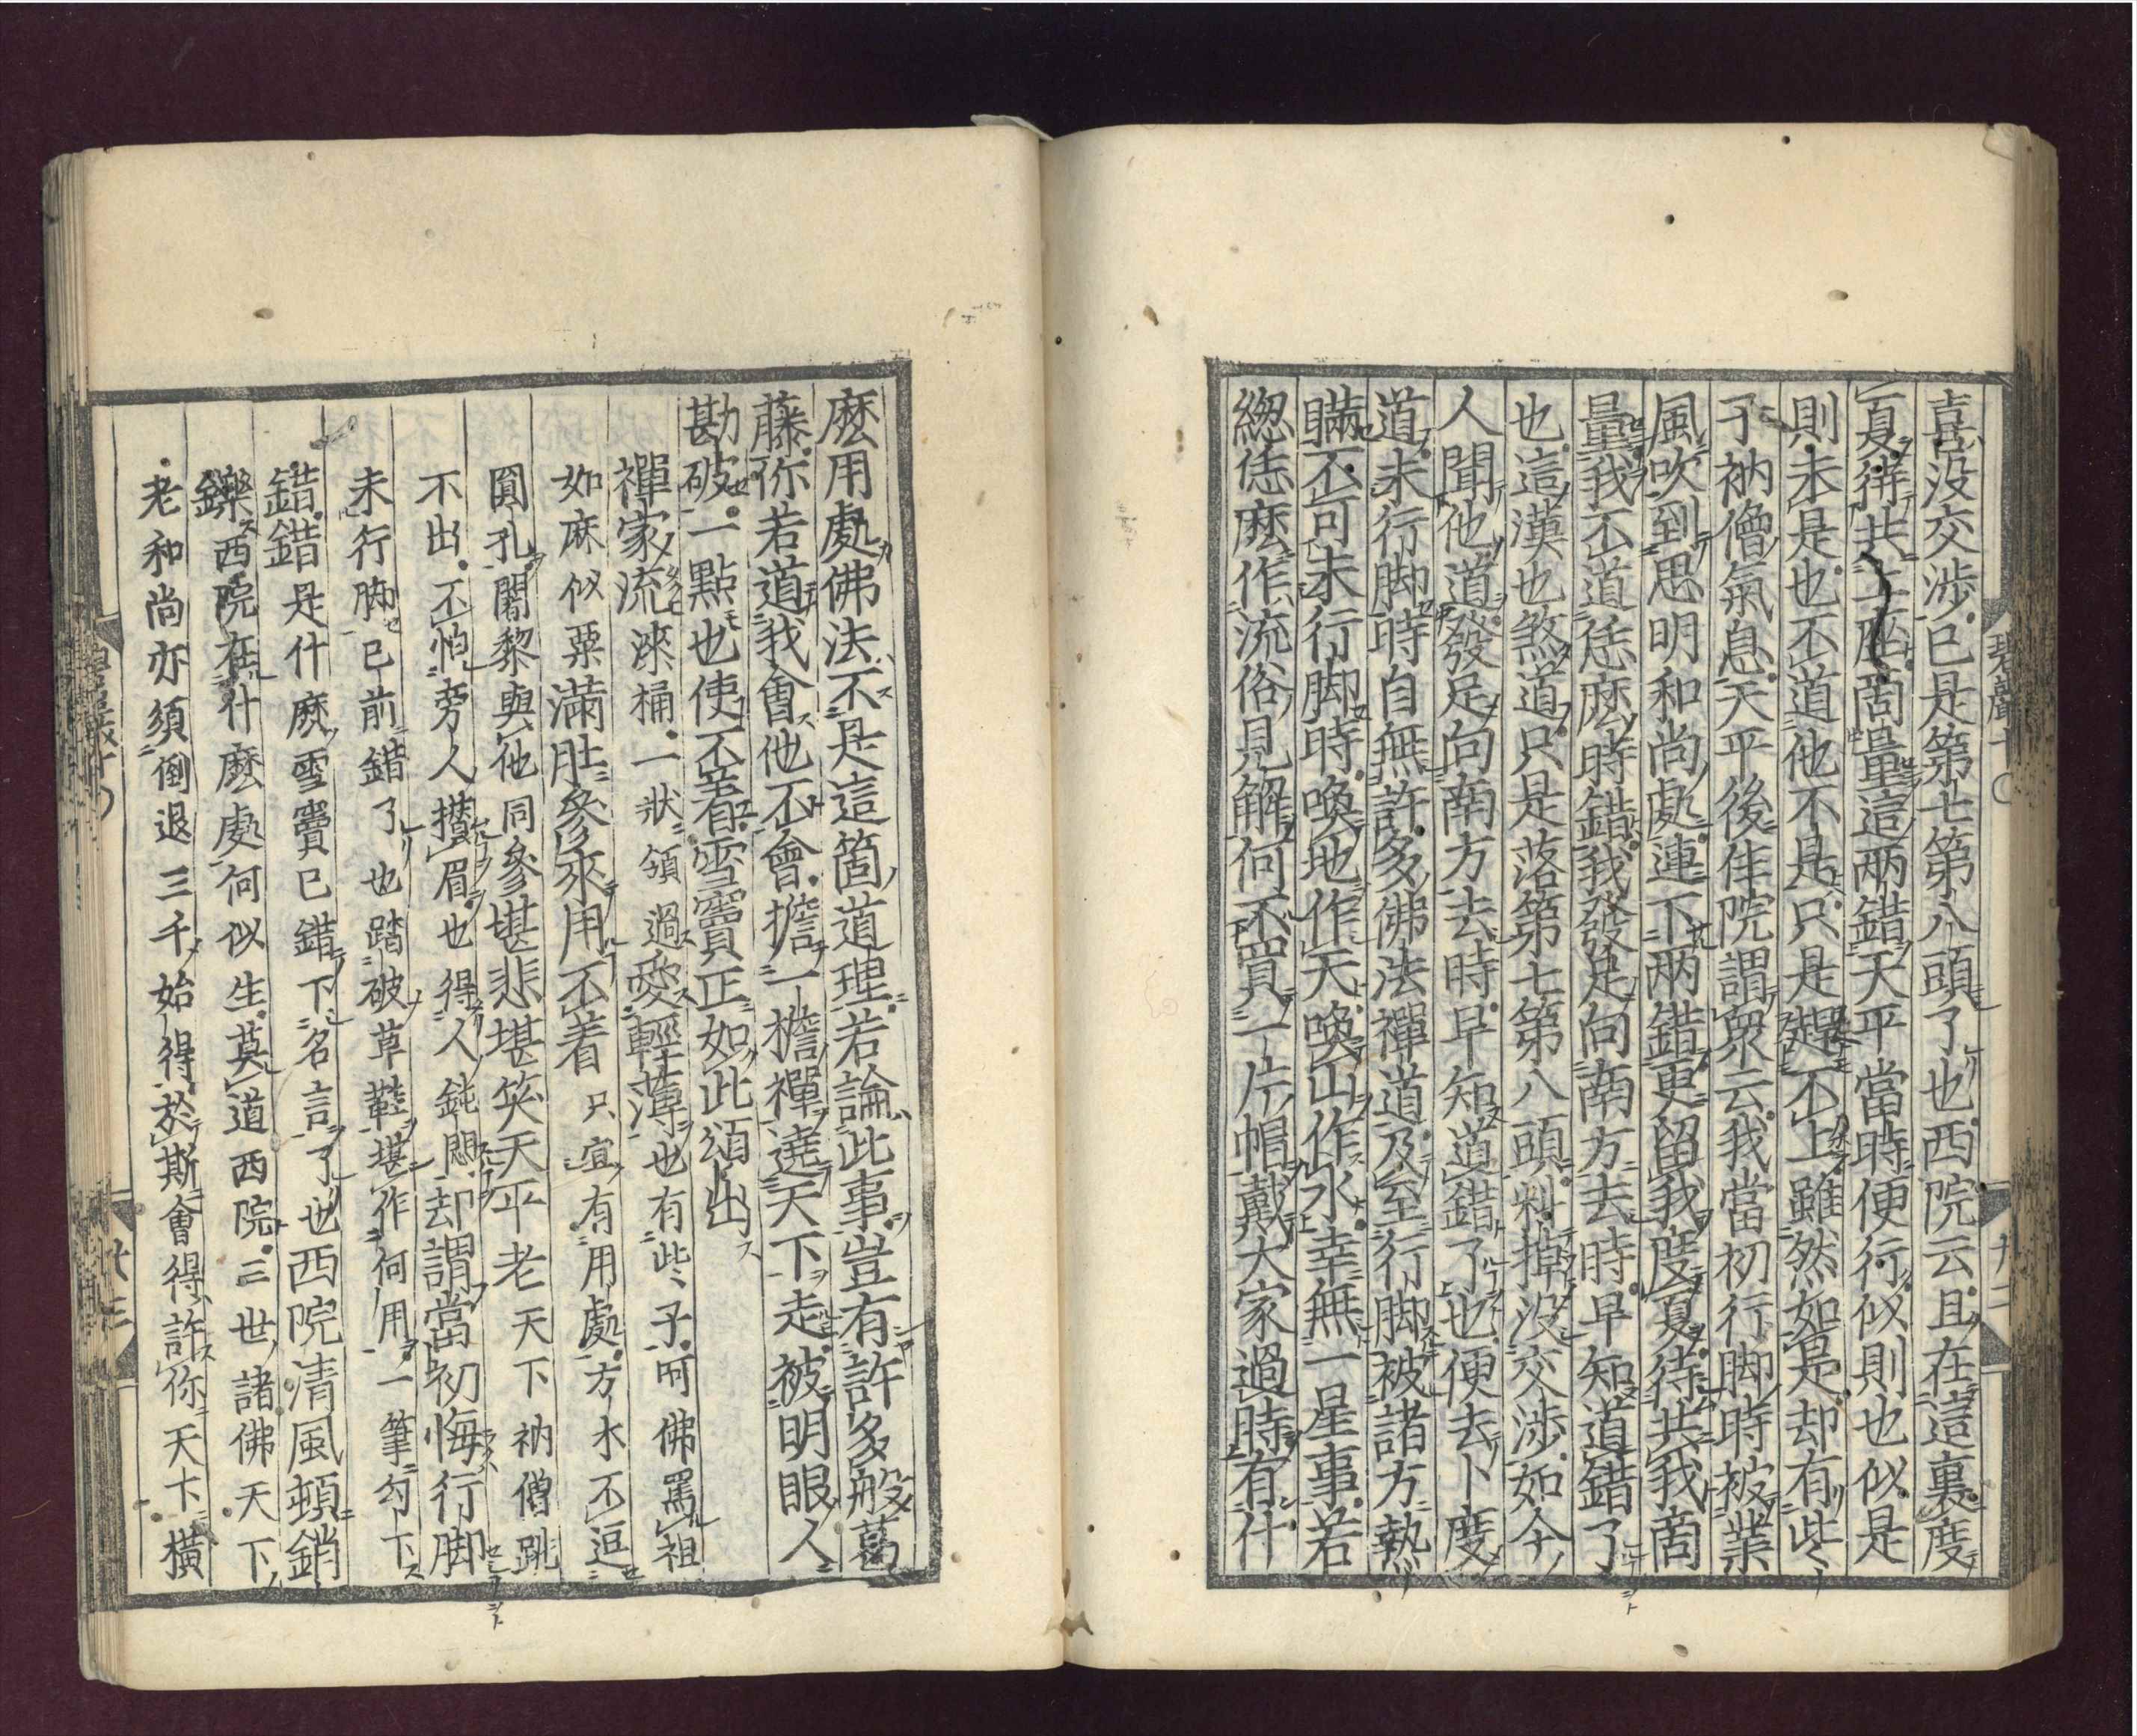 喜没交渉已是第七第八頭了也西院云且在這裏度
夏待共上座商量這兩錯天平當時便行似則也似是
則未是也不道他不是只是趕不上雖然如是却有些
子衲僧氣息天平後住院謂衆云我當初行脚時被業
風吹到思明和尚處連下兩錯更留我度夏待共我商
量我不道恁麽時錯我發足向南方去時早知道錯了
也這漢也煞道只是落第七第八頭料掉没交渉如今
人聞他道發足向南方去時早知道錯了也便去卜度
道未行脚時自無許多佛法禪道及至行脚被諸方熱
瞞不可未行脚時喚地作天喚山作水幸無一星事若
緫恁麽作流俗見解何不買一片帽戴大家過時有什
碧巖十〇
十二
麽用處佛法不是這箇道理若論此事豈有許多般葛
藤你若道我會他不會擔一擔禪遶天下走被明眼人
勘破一點也使不着雪竇正如此頌出
禪家流漆桶一狀領過愛輕薄也有些子呵佛罵祖
如麻似粟滿肚參來用不着只宜有用處方木不逗
圓孔闍黎與他同參堪悲堪笑天平老天下衲僧跳
不出不怕旁人攢眉也得人鈍悶却謂當初悔行脚
未行脚已前錯了也踏破草鞋堪作何用一筆勾下
錯錯是什麽雪竇已錯下名言了也西院清風頓銷
鑠西院在什麽處何似生莫道西院三世諸佛天下
老和尚亦須倒退三千始得於斯會得許你天下横